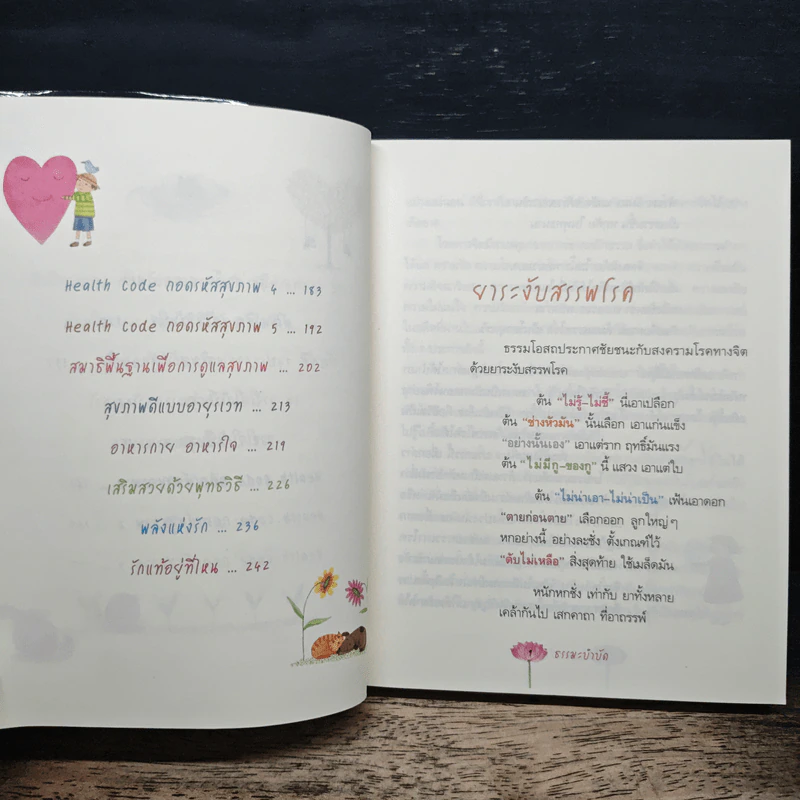 Health Code ถอดรหัสสุขภาพ 4 ... 183
Health Code ถอดรหัสสุขภาพ 5 ... 192
สมาธิพื้นฐานเพื่อการดูแลสุขภาพ ... 202
สุขภาพดีแบบอายุรเวท ... 213
อาหารกาย อาหารใจ ... 219
เสริมสวยด้วยพุทธวิธี ... 226
พลังแห่งรัก ... 236
รักแท้อยู่ที่ไหน ... 242
ยาระงับสรรพโรค
ธรรมโอสถประกาศชัยชนะกับสงครามโรคทางจิต
ด้วยยาระงับสรรพโรค
ต้น "ไม่รู้–ไม่ชี้" นี่เอาเปลือก
ต้น "ช่างหัวมัน" นั้นเลือก เอาแก่นแข็ง
"อย่างนั้นเอง" เอาแต่ราก ฤทธิ์มันแรง
ต้น "ไม่มีกู–ของกู" นี้ แสวง เอาแต่ใบ
ต้น "ไม่น่าเอา–ไม่น่าเป็น" เฟ้นเอาดอก
"ตายก่อนตาย" เลือกออก ลูกใหญ่ๆ
หกอย่างนี้ อย่างละชั่ง ตั้งเกณฑ์ไว้
"ดับไม่เหลือ" สิ่งสุดท้าย ใช้เมล็ดมัน
หนักหกชั่ง เท่ากับ ยาทั้งหลาย
เคล้ากันไป เสกคาถา ที่อาถรรพ์
ธรรมะบำบัด